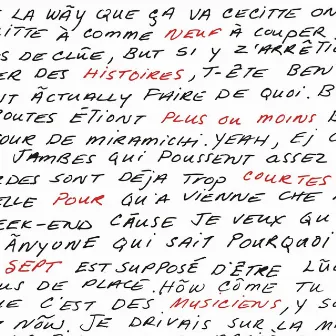 E LA WÃY QUE ÇA VA CECITTE ON
CITTE À COMME NEUF À COUPER
S DE CLÛE, BUT SI Y Z'ARRÊTI
ER DES HISTOIRES, T-ÊTE BEN
NT ÃCTUALLY FAIRE DE QUOI. B
OUTES ÉTIONT PLUS OU MOINS D
OUR DE MIRAMICHI. YEAH, EJ C
JAMBES QUI POUSSENT ASSEZ
RDES SONT DÉJA TROP COURTES
ELLE POUR QU'A VIENNE CHE
EEK-END CÃUSE JE VEUX QU
ÃNYONE QUI SAIT POURQUOI
SEPT EST SUPPOSÉ D'ÊTRE LÛ
US DE PLACE. HÕW CÕME TU
E C'EST DES MUSICIENS, Y S
NÕW. JE DRIVAIS SUR LA M